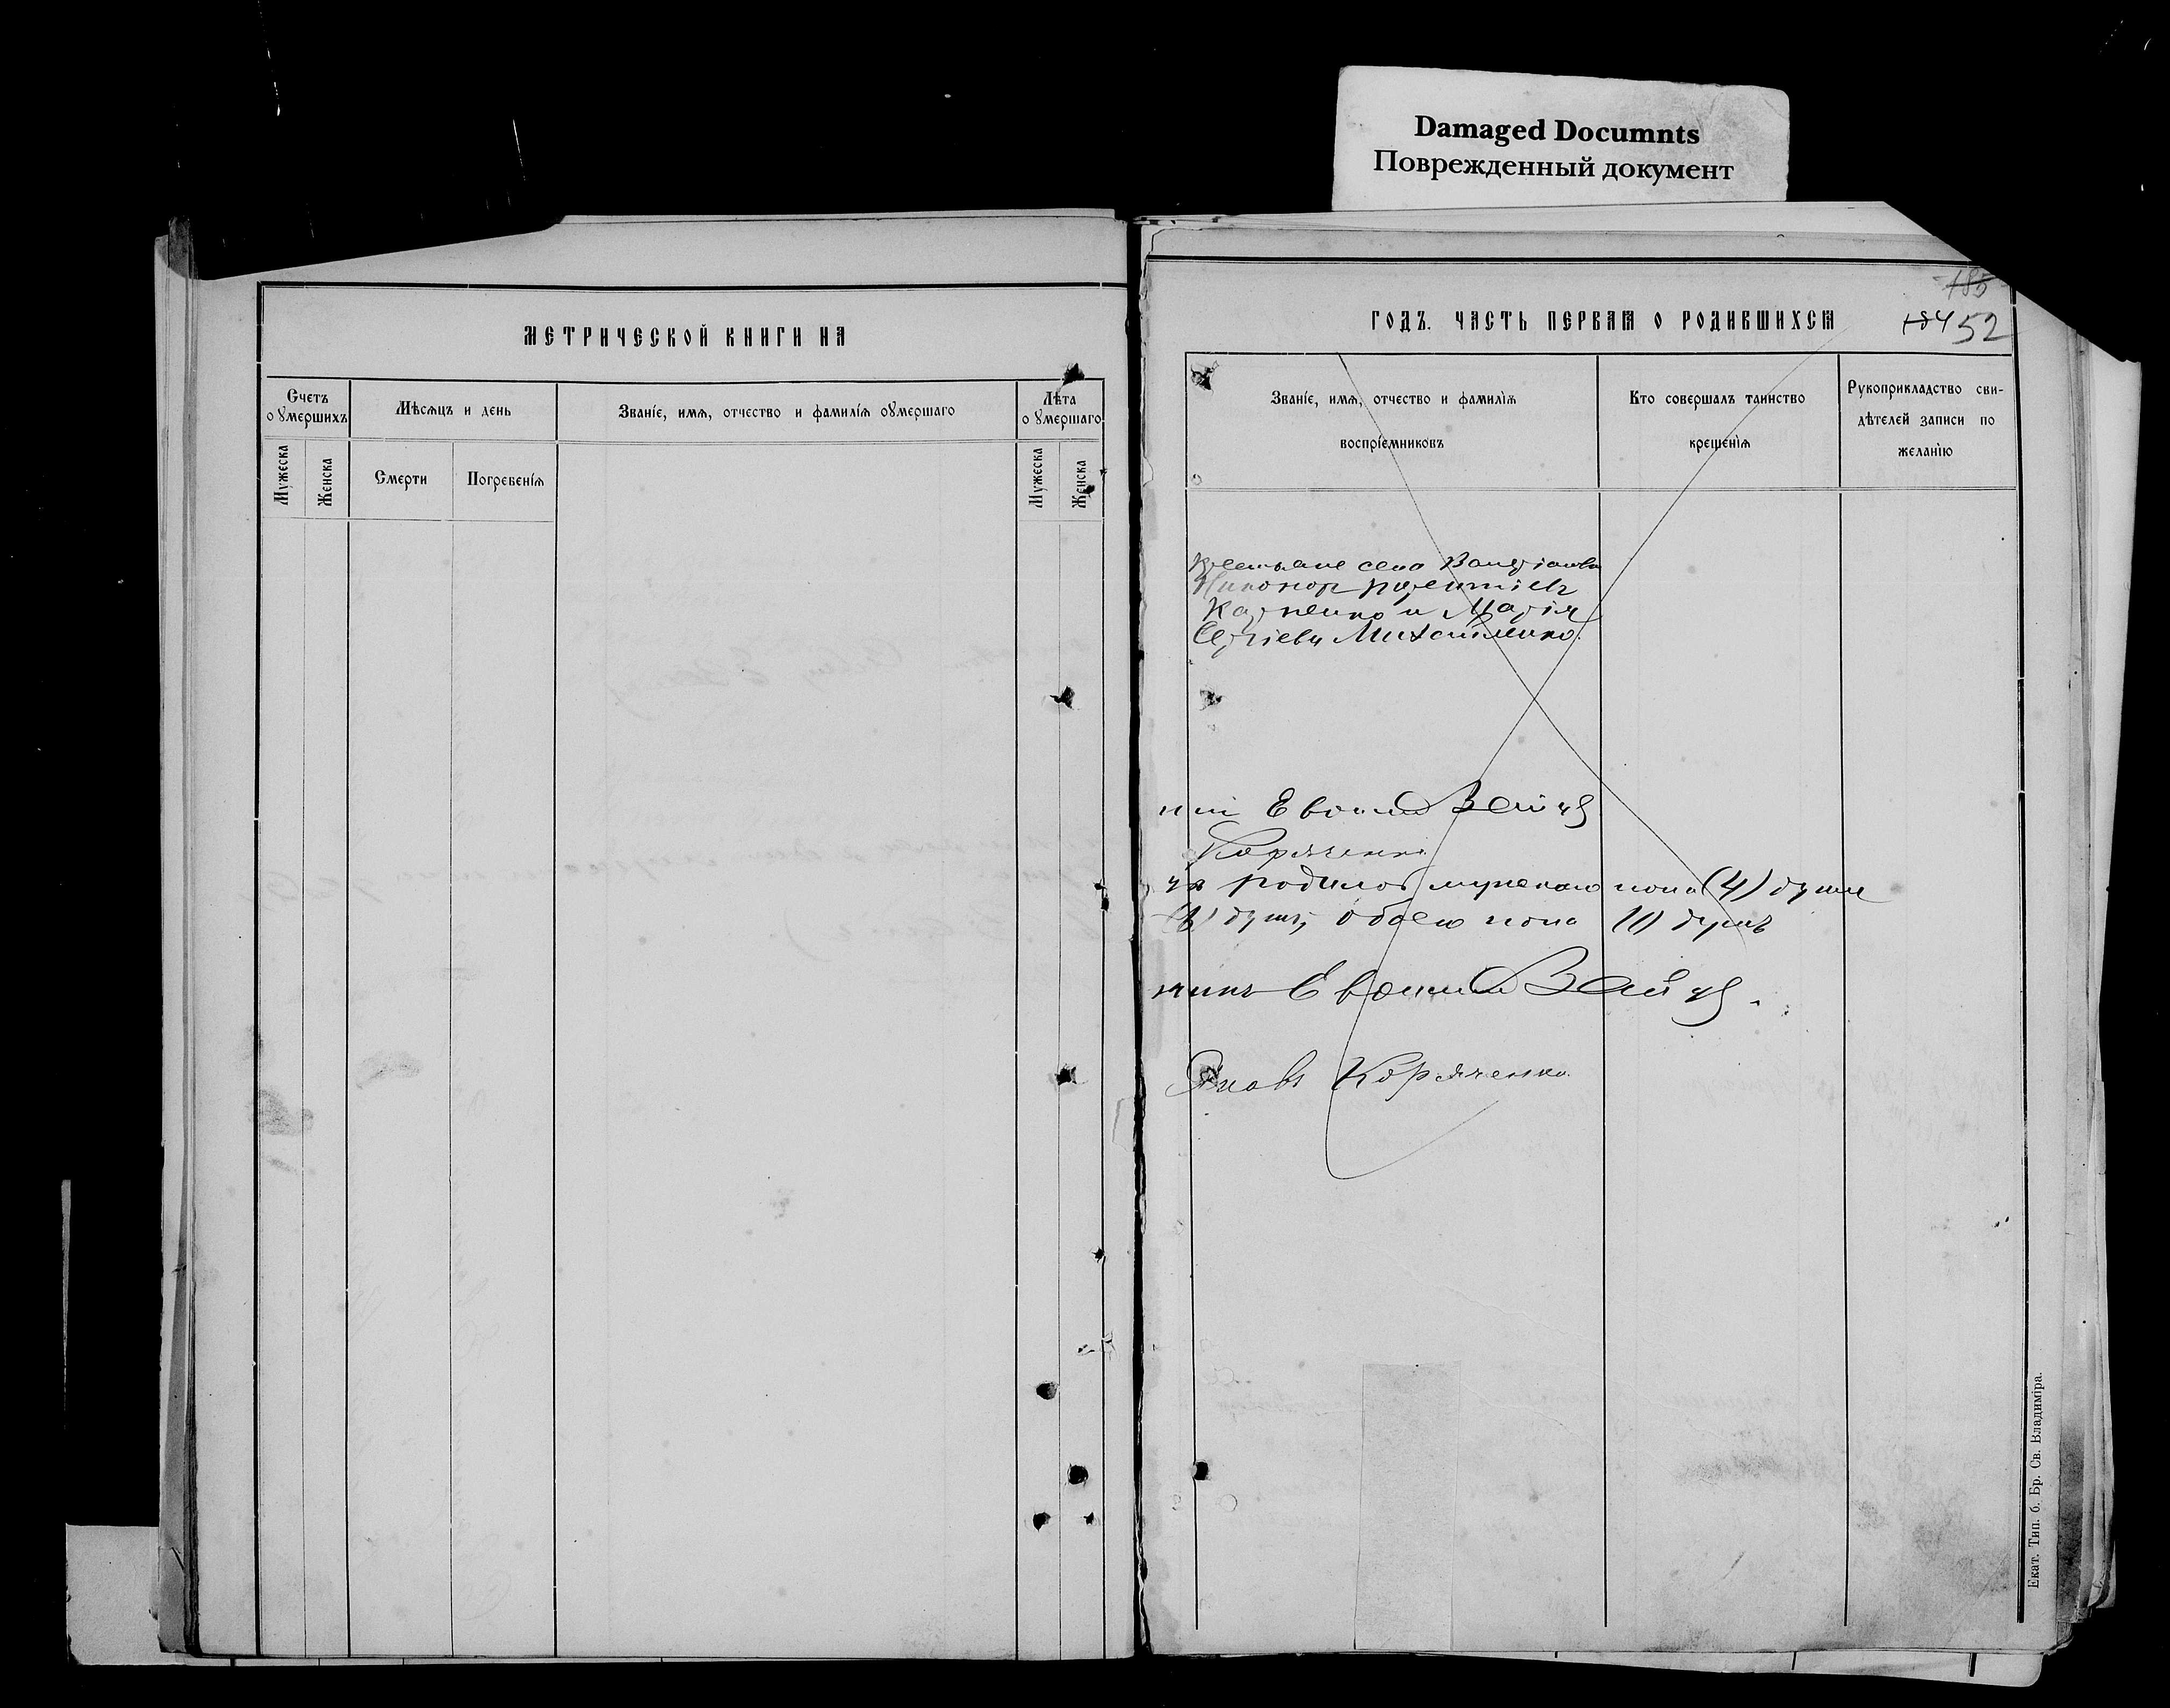 Damaged Documnts
Поврежденный документ
МЕТРИЧЕСКОЙ КНИГИ НА
Счетъ
оумершихъ
Мѣсяцъ и день
Званіе, имя, отчество и фамилія оумершаго
Лѣта
оумершаго
Мужеска
Женска
Смерти
Погребенія
Мужеска
Женска
185
184 52
ГОДЪ. ЧАСТЬ ПЕРВАЯ О РОДИВШИХСЯ
Званіе, имя, отчество и фамилія
воспріемниковъ
Кто совершалъ таинство
крещенія
Рукоприкладство сви-
дѣтелей записи по
желанію
Крестьяне села
Никонор
Карпенко и Марія
Сергіева Михайленко.
Евфимій Заицъ
Коряченко
родилось мужеска пола (4) души
душъ, обоего пола 11) душъ
Евфимій Заицъ.
Яковъ Коряченко
Екат. Тип. б. Бр. Св. Владиміра.